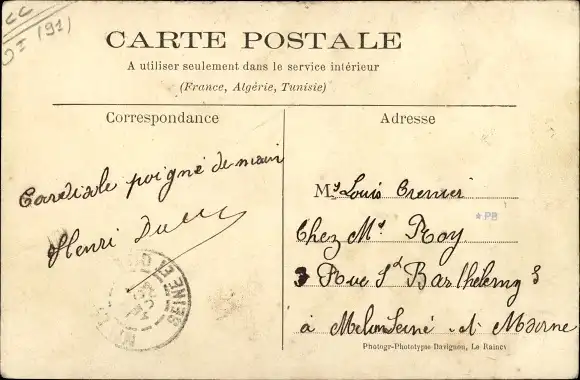 CC
(91)
CARTE POSTALE
A utiliser seulement dans le service intérieur
(France, Algérie, Tunisie)
Correspondance
Adresse
Cordiale poigné de main
Henri
Mr Louis Crenier
Chez Mr Roy
3 Rue St Barthelemy 3
à Melun Seine et Marne
* PB
SEINE ET
Photogr-Phototypie Bavignon, Le Raincy